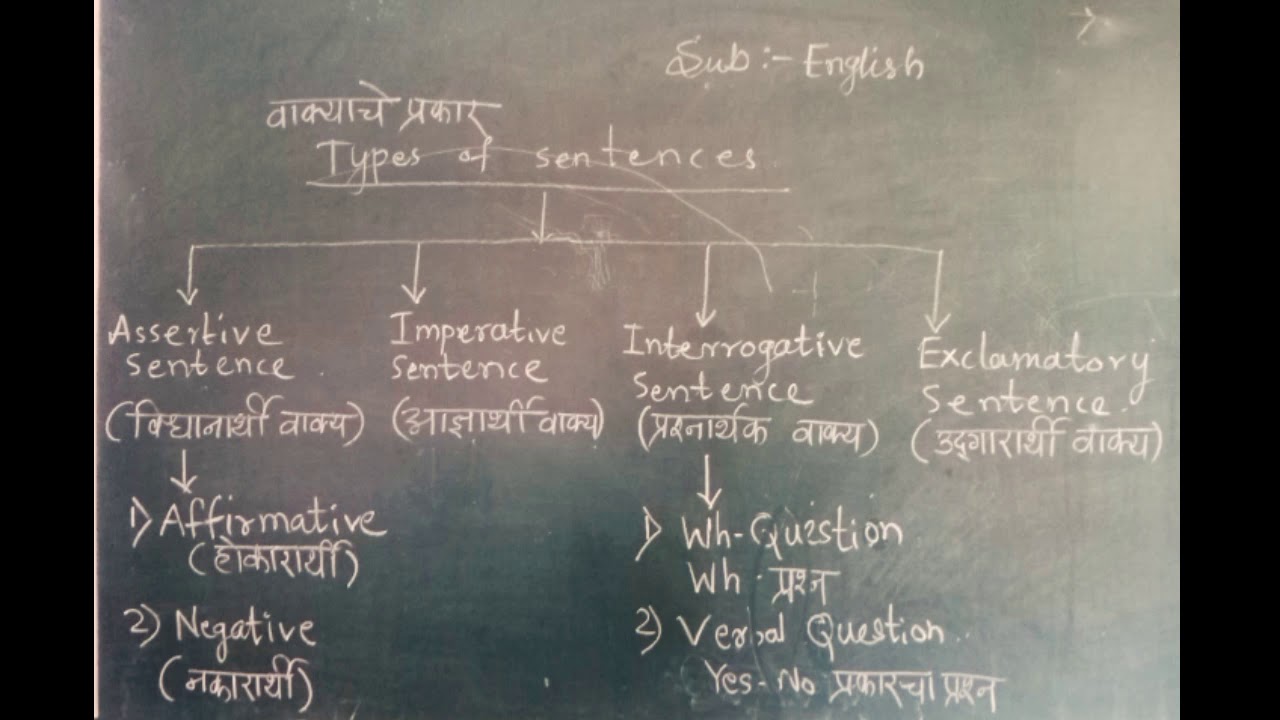 Sub :- English
वाक्याचे प्रकार
Types of sentences
Assertive
Sentence
(विधानार्थी वाक्य)
Imperative
Sentence
(आज्ञार्थी वाक्य)
Interrogative
Sentence
(प्रश्नार्थक वाक्य)
Exclamatory
Sentence.
(उद्गारार्थी वाक्य)
1) Affirmative
(होकारार्थी)
2) Negative
(नकारार्थी)
1) Wh-Question
Wh - प्रश्न
2) Verbal Question
Yes-No प्रकारचा प्रश्न